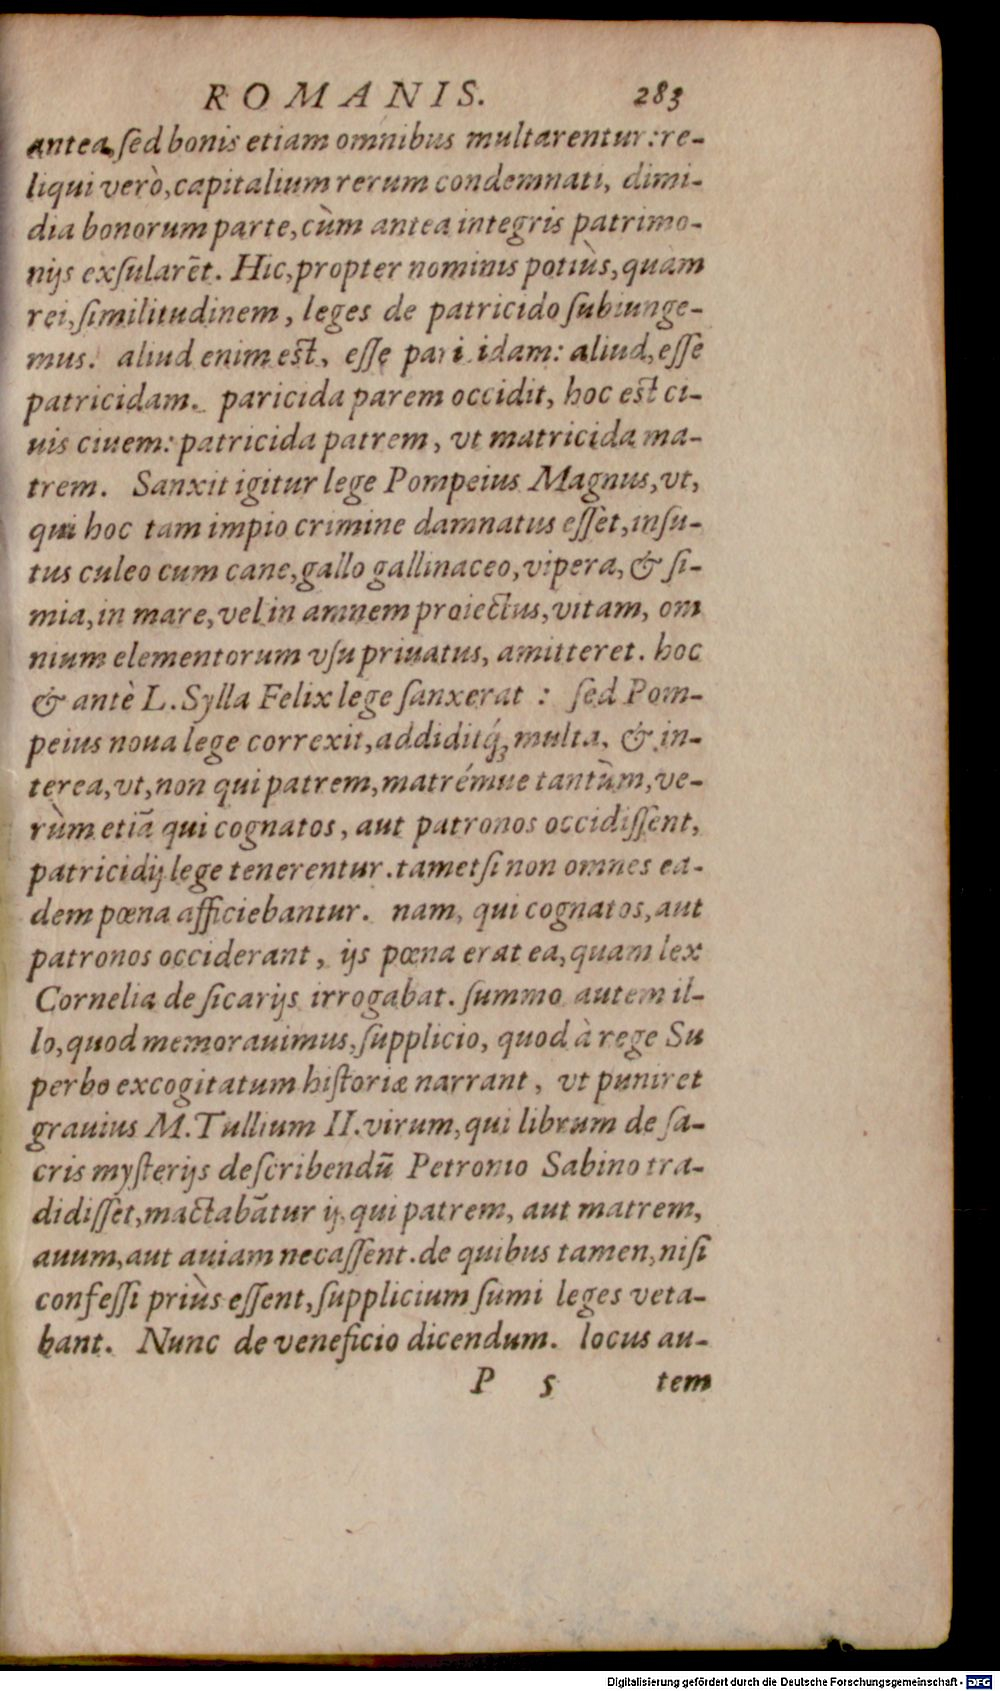 ROMANIS. 283
antea, ſed bonis etiam omnibus multarentur: re-
liqui verò, capitalium rerum condemnati, dimi-
dia bonorum parte, cùm antea integris patrimo-
nijs exſularēt. Hic, propter nominis potiùs, quàm
rei, ſimilitudinem, leges de patricido ſubiunge-
mus. aliud enim est, eſſe pari idam: aliud, eſſe
patricidam. paricida parem occidit, hoc est ci-
uis ciuem: patricida patrem, vt matricida ma-
trem. Sanxit igitur lege Pompeius Magnus, vt,
qui hoc tam impio crimine damnatus eſſet, inſu-
tus culeo cum cane, gallo gallinaceo, vipera, & ſi-
mia, in mare, vel in amnem proiectus, vitam, om
nium elementorum vſu priuatus, amitteret. hoc
& antè L. Sylla Felix lege ſanxerat : ſed Pom-
peius noua lege correxit, addiditq́ꝫ multa, & in-
terea, vt, non qui patrem, matrémue tantùm, ve-
rùm etiā qui cognatos, aut patronos occidiſſent,
patricidij lege tenerentur. tametſi non omnes ea-
dem pœna afficiebantur. nam, qui cognatos, aut
patronos occiderant, ijs pœna erat ea, quam lex
Cornelia de ſicarijs irrogabat. ſummo autem il-
lo, quod memorauimus, ſupplicio, quod à rege Su
perbo excogitatum hiſtoriæ narrant, vt puniret
grauius M. Tullium II. virum, qui librum de ſa-
cris myſterijs deſcribendū Petronio Sabino tra-
didiſſet, mactabātur ij, qui patrem, aut matrem,
auum, aut auiam necaſſent. de quibus tamen, niſi
confeſſi priùs eſſent, ſupplicium ſumi leges veta-
bant. Nunc de veneficio dicendum. locus au-
P 5 tem
Digitalisierung gefördert durch die Deutsche Forschungsgemeinschaft - DFG